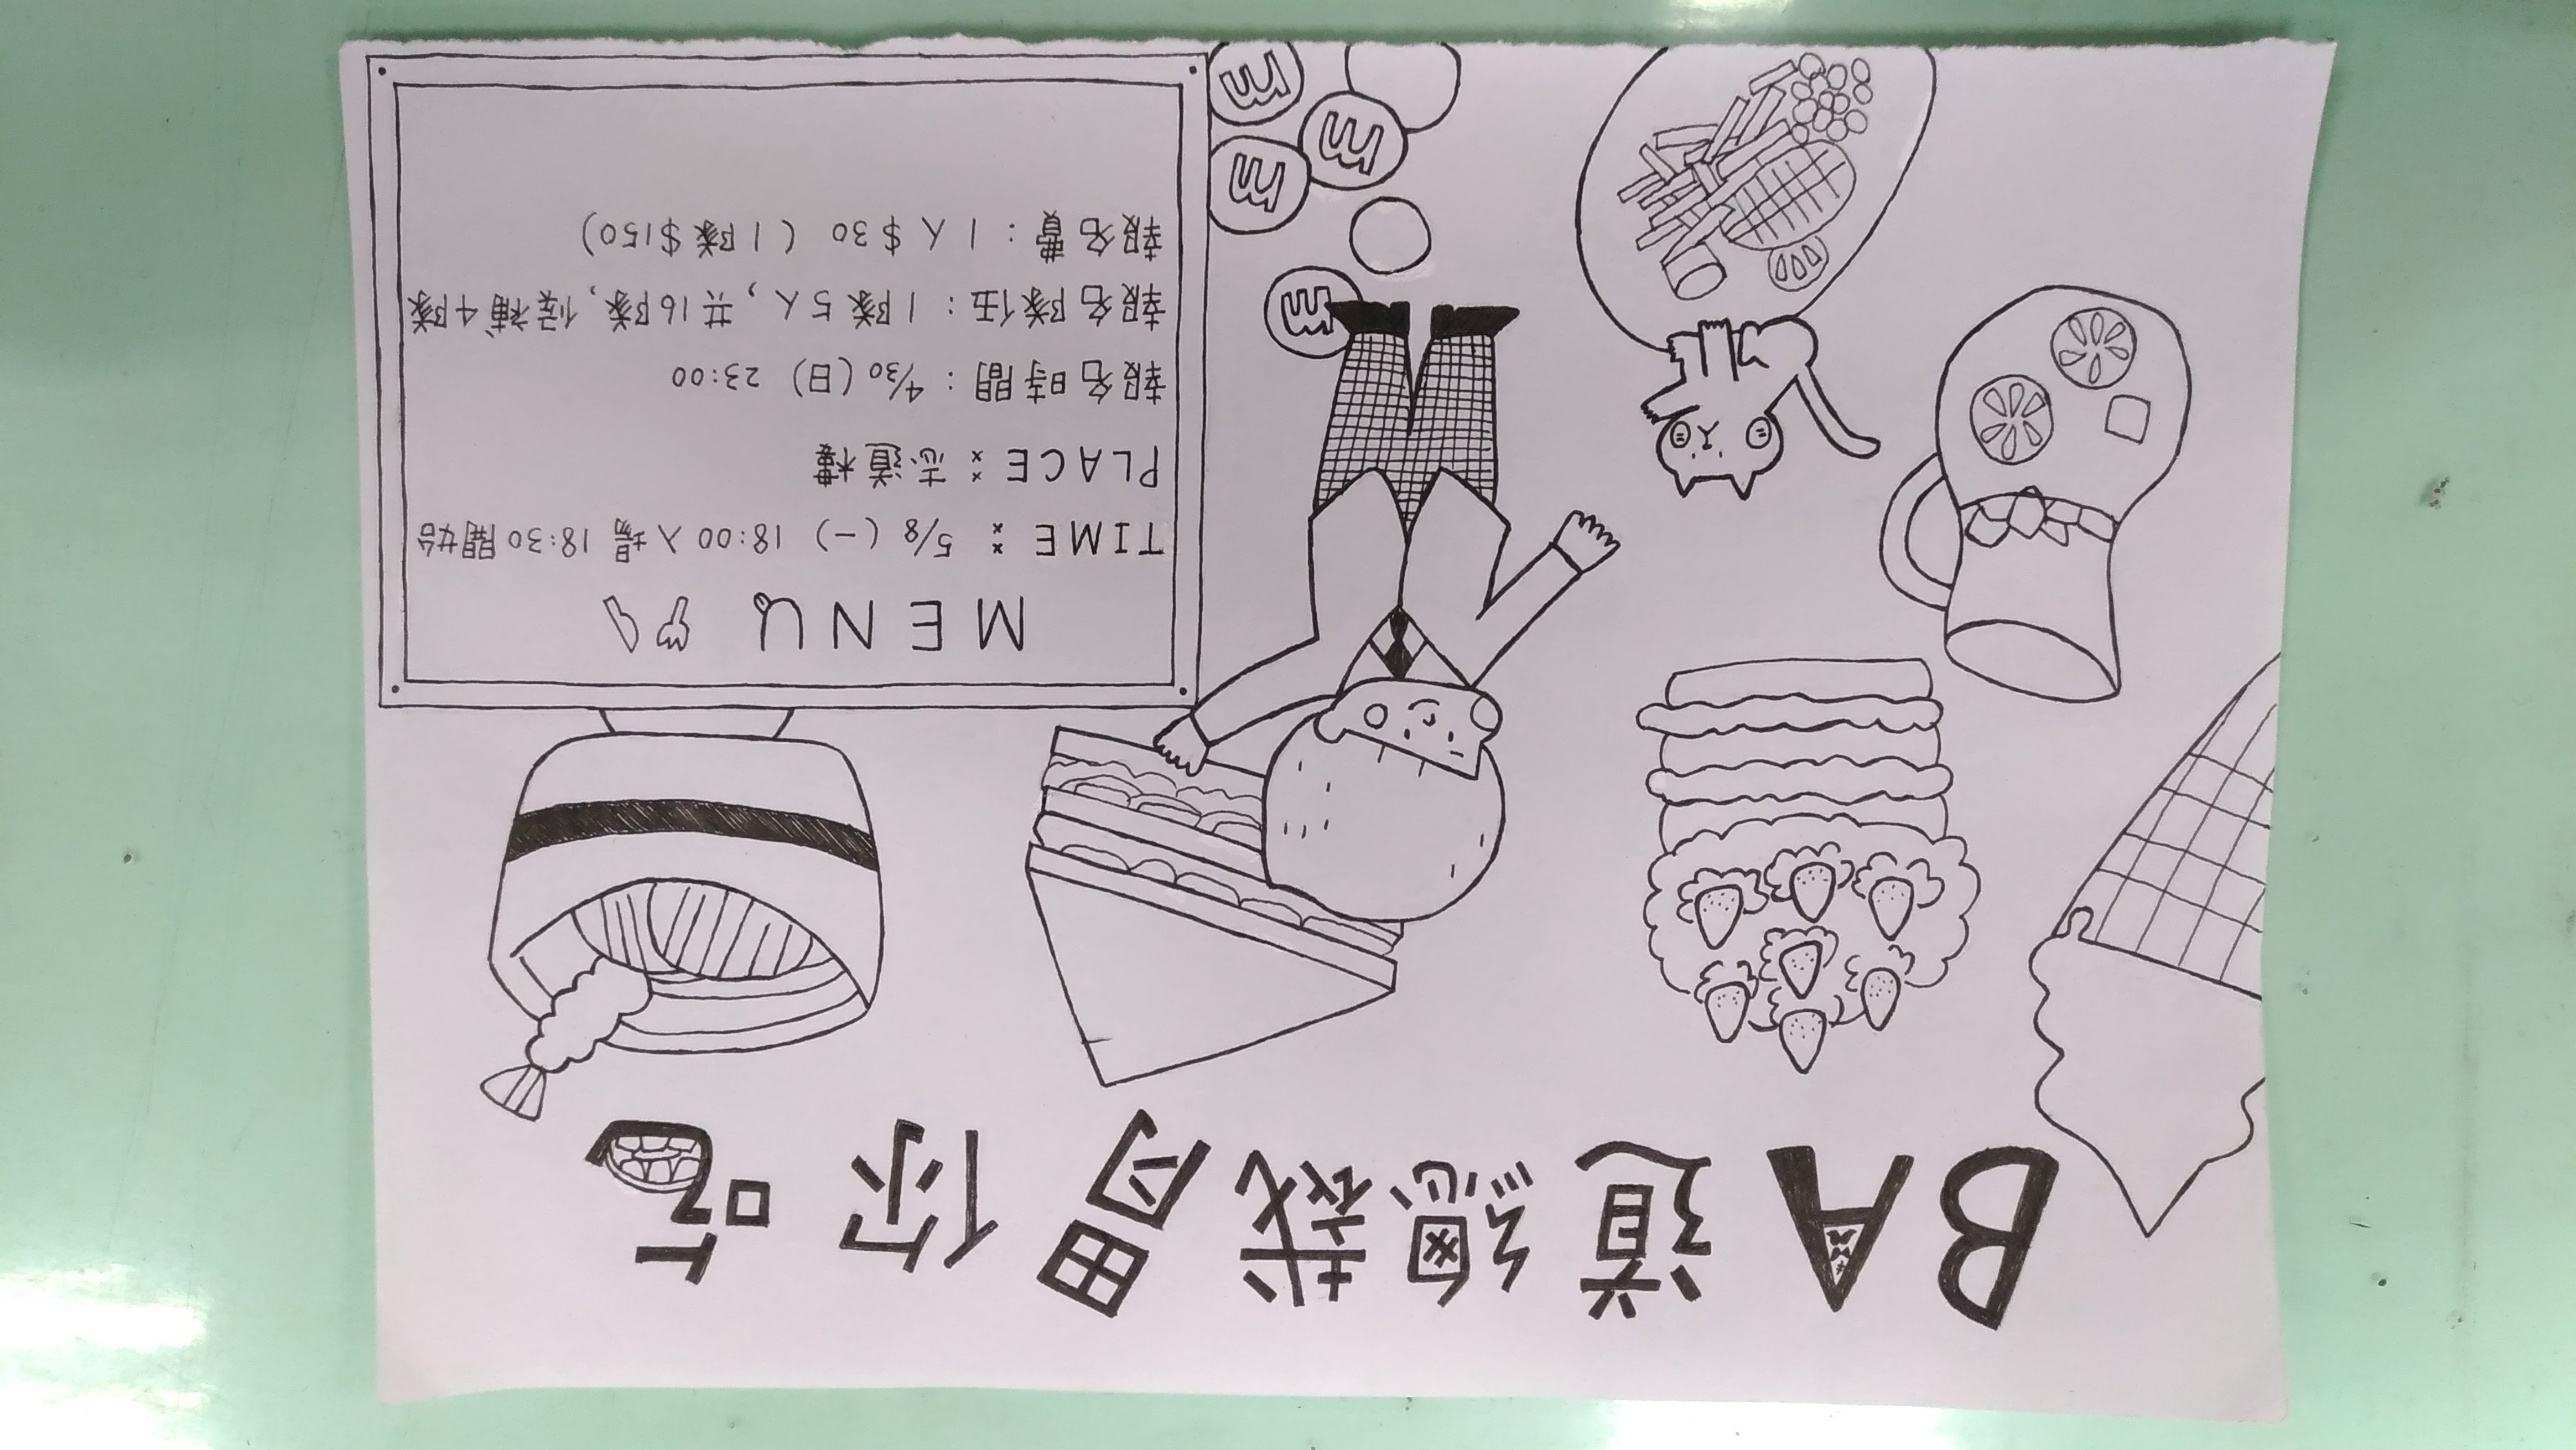 BA道總裁胃你吃
MENU
TIME：5/8（一）18:00入場 18:30開始
PLACE：志道樓
報名時間：4/30（日）23:00
報名隊伍：1隊5人，共16隊，候補4隊
報名費：1人$30（1隊$150）
m
m
m
m